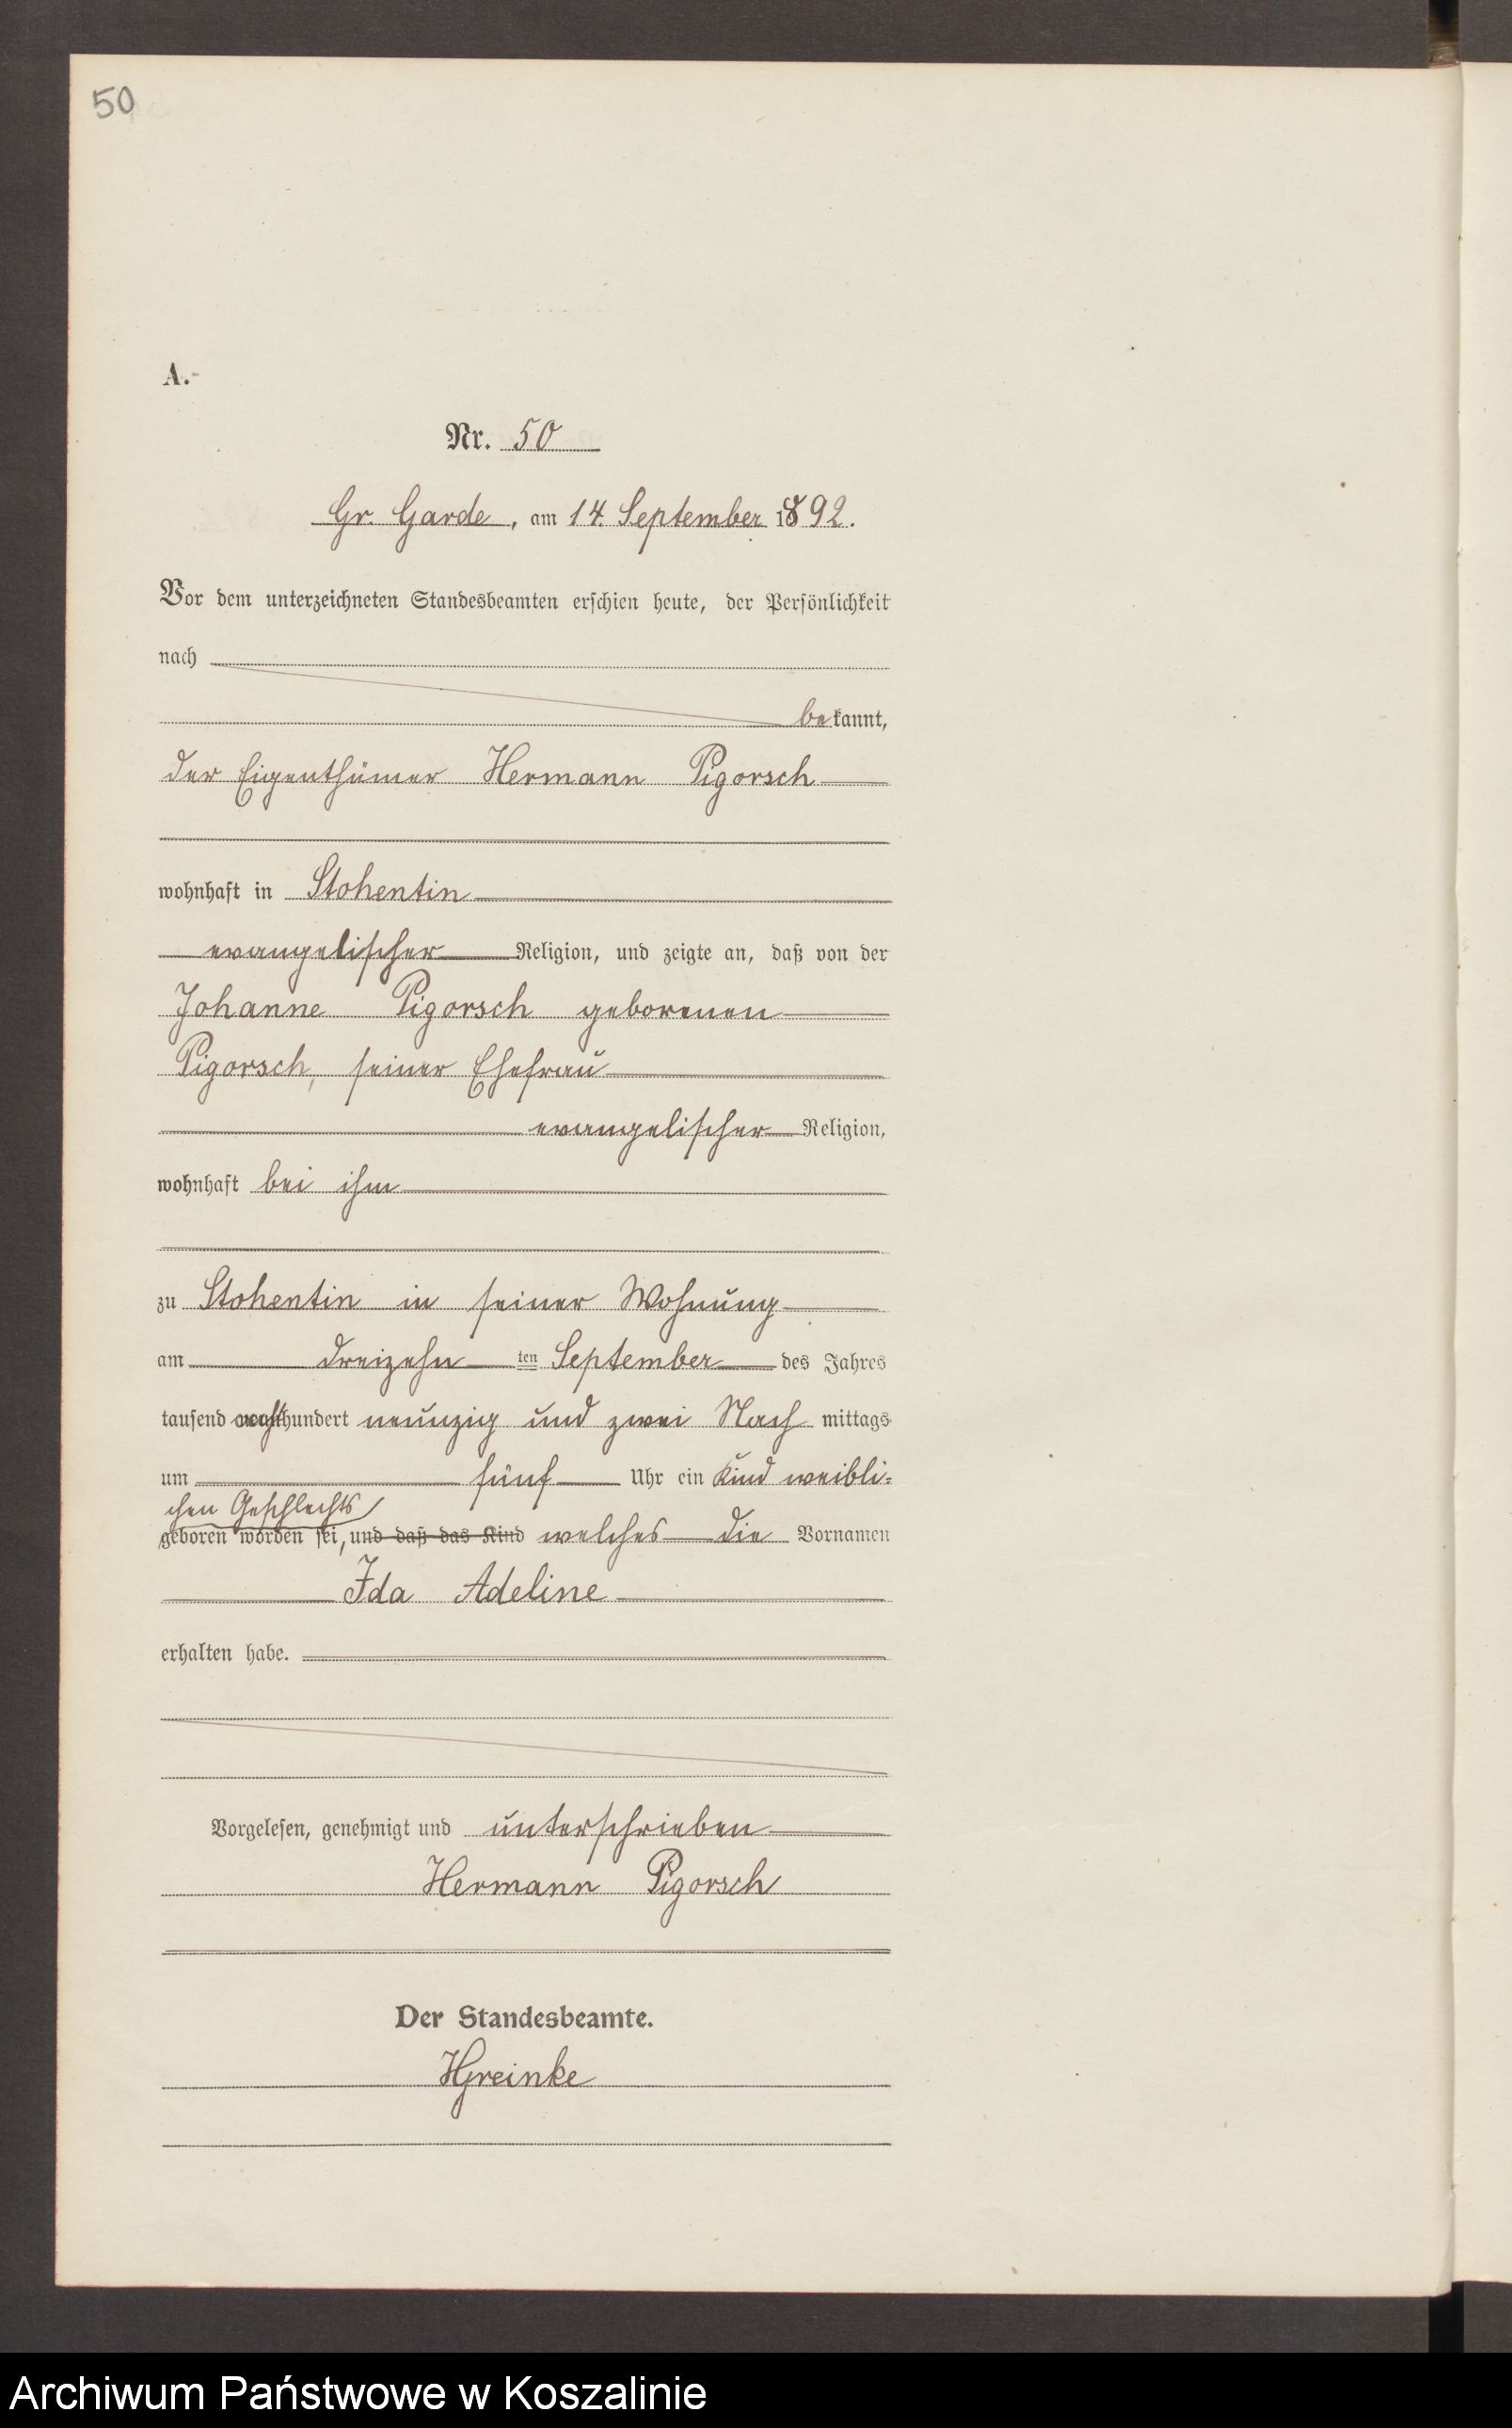 50
A.
Nr. 50
Gr. Garde, am 14. September 1892.
Vor dem unterzeichneten Standesbeamten erschien heute, der Persönlichkeit
nach
bekannt,
der Eigenthümer Hermann Pigorsch
wohnhaft in Stohentin
evangelischer Religion, und zeigte an, daß von der
Johanne Pigorsch geborenen
Pigorsch, seiner Ehefrau
evangelischer Religion,
wohnhaft bei ihm
zu Stohentin in seiner Wohnung
am dreizehn ten September des Jahres
tausend achthundert neunzig und zwei Nach mittags
um fünf Uhr ein Kind weibli-
chen Geschlechts
geboren worden sei, und daß das Kind welches die Vornamen
Ida Adeline
erhalten habe.
Vorgelesen, genehmigt und unterschrieben
Hermann Pigorsch
Der Standesbeamte.
HGreinke
Archiwum Państwowe w Koszalinie